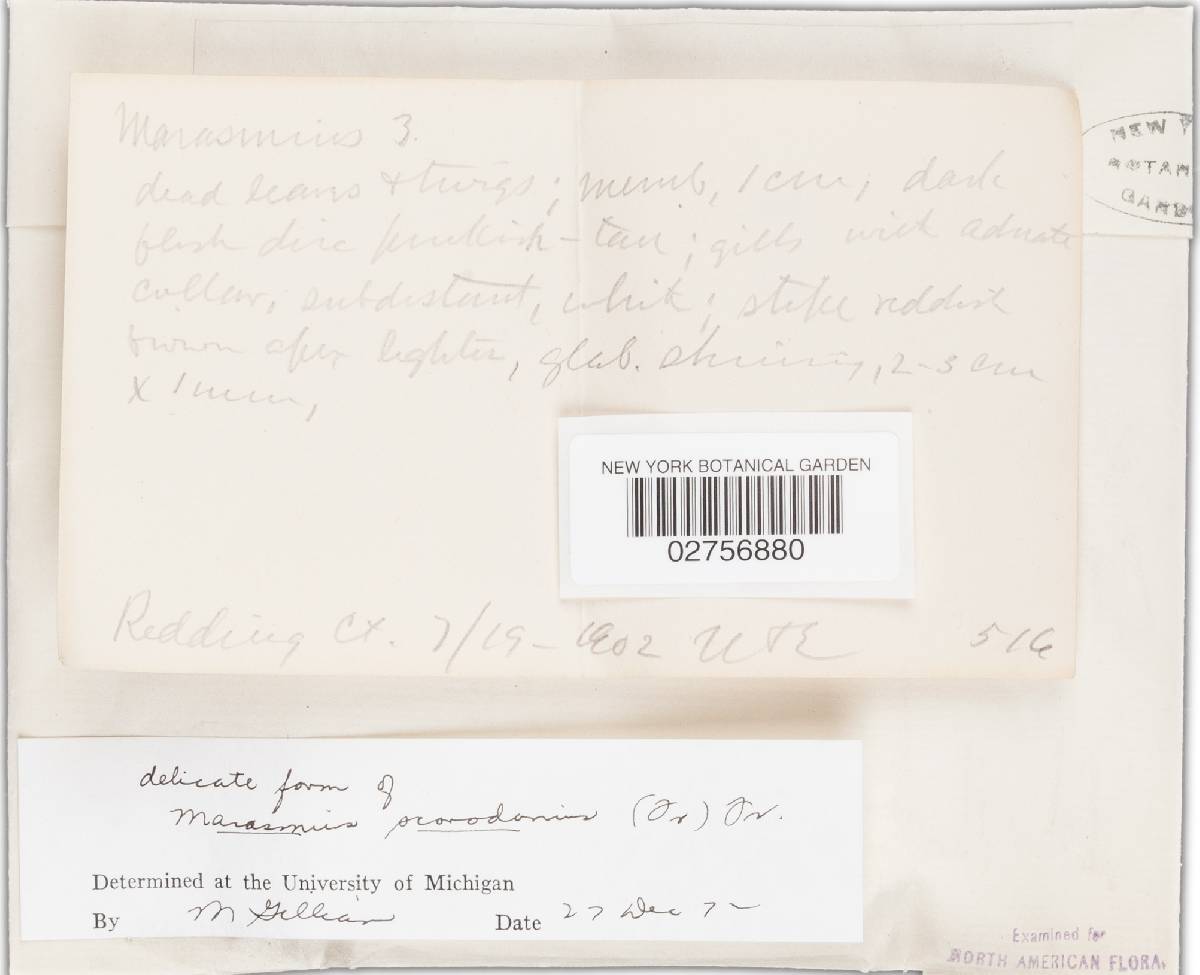 Marasmius 3.
dead leaves & twigs; memb, 1 cm; dark
flesh disc pinkish-tan; gills with adnate
collar, subdistant, white; stipe reddish
brown apex lighter, glab. shining, 2-3 cm
x 1 mm,
NEW Y
BOTAN
GARD
NEW YORK BOTANICAL GARDEN
02756880
Redding Ct. 7/19-1902 516
delicate form of
Marasmius scorodonius (Fr) Fr.
Determined at the University of Michigan
By M Gilliam Date 27 Dec 72
Examined for
NORTH AMERICAN FLORA.